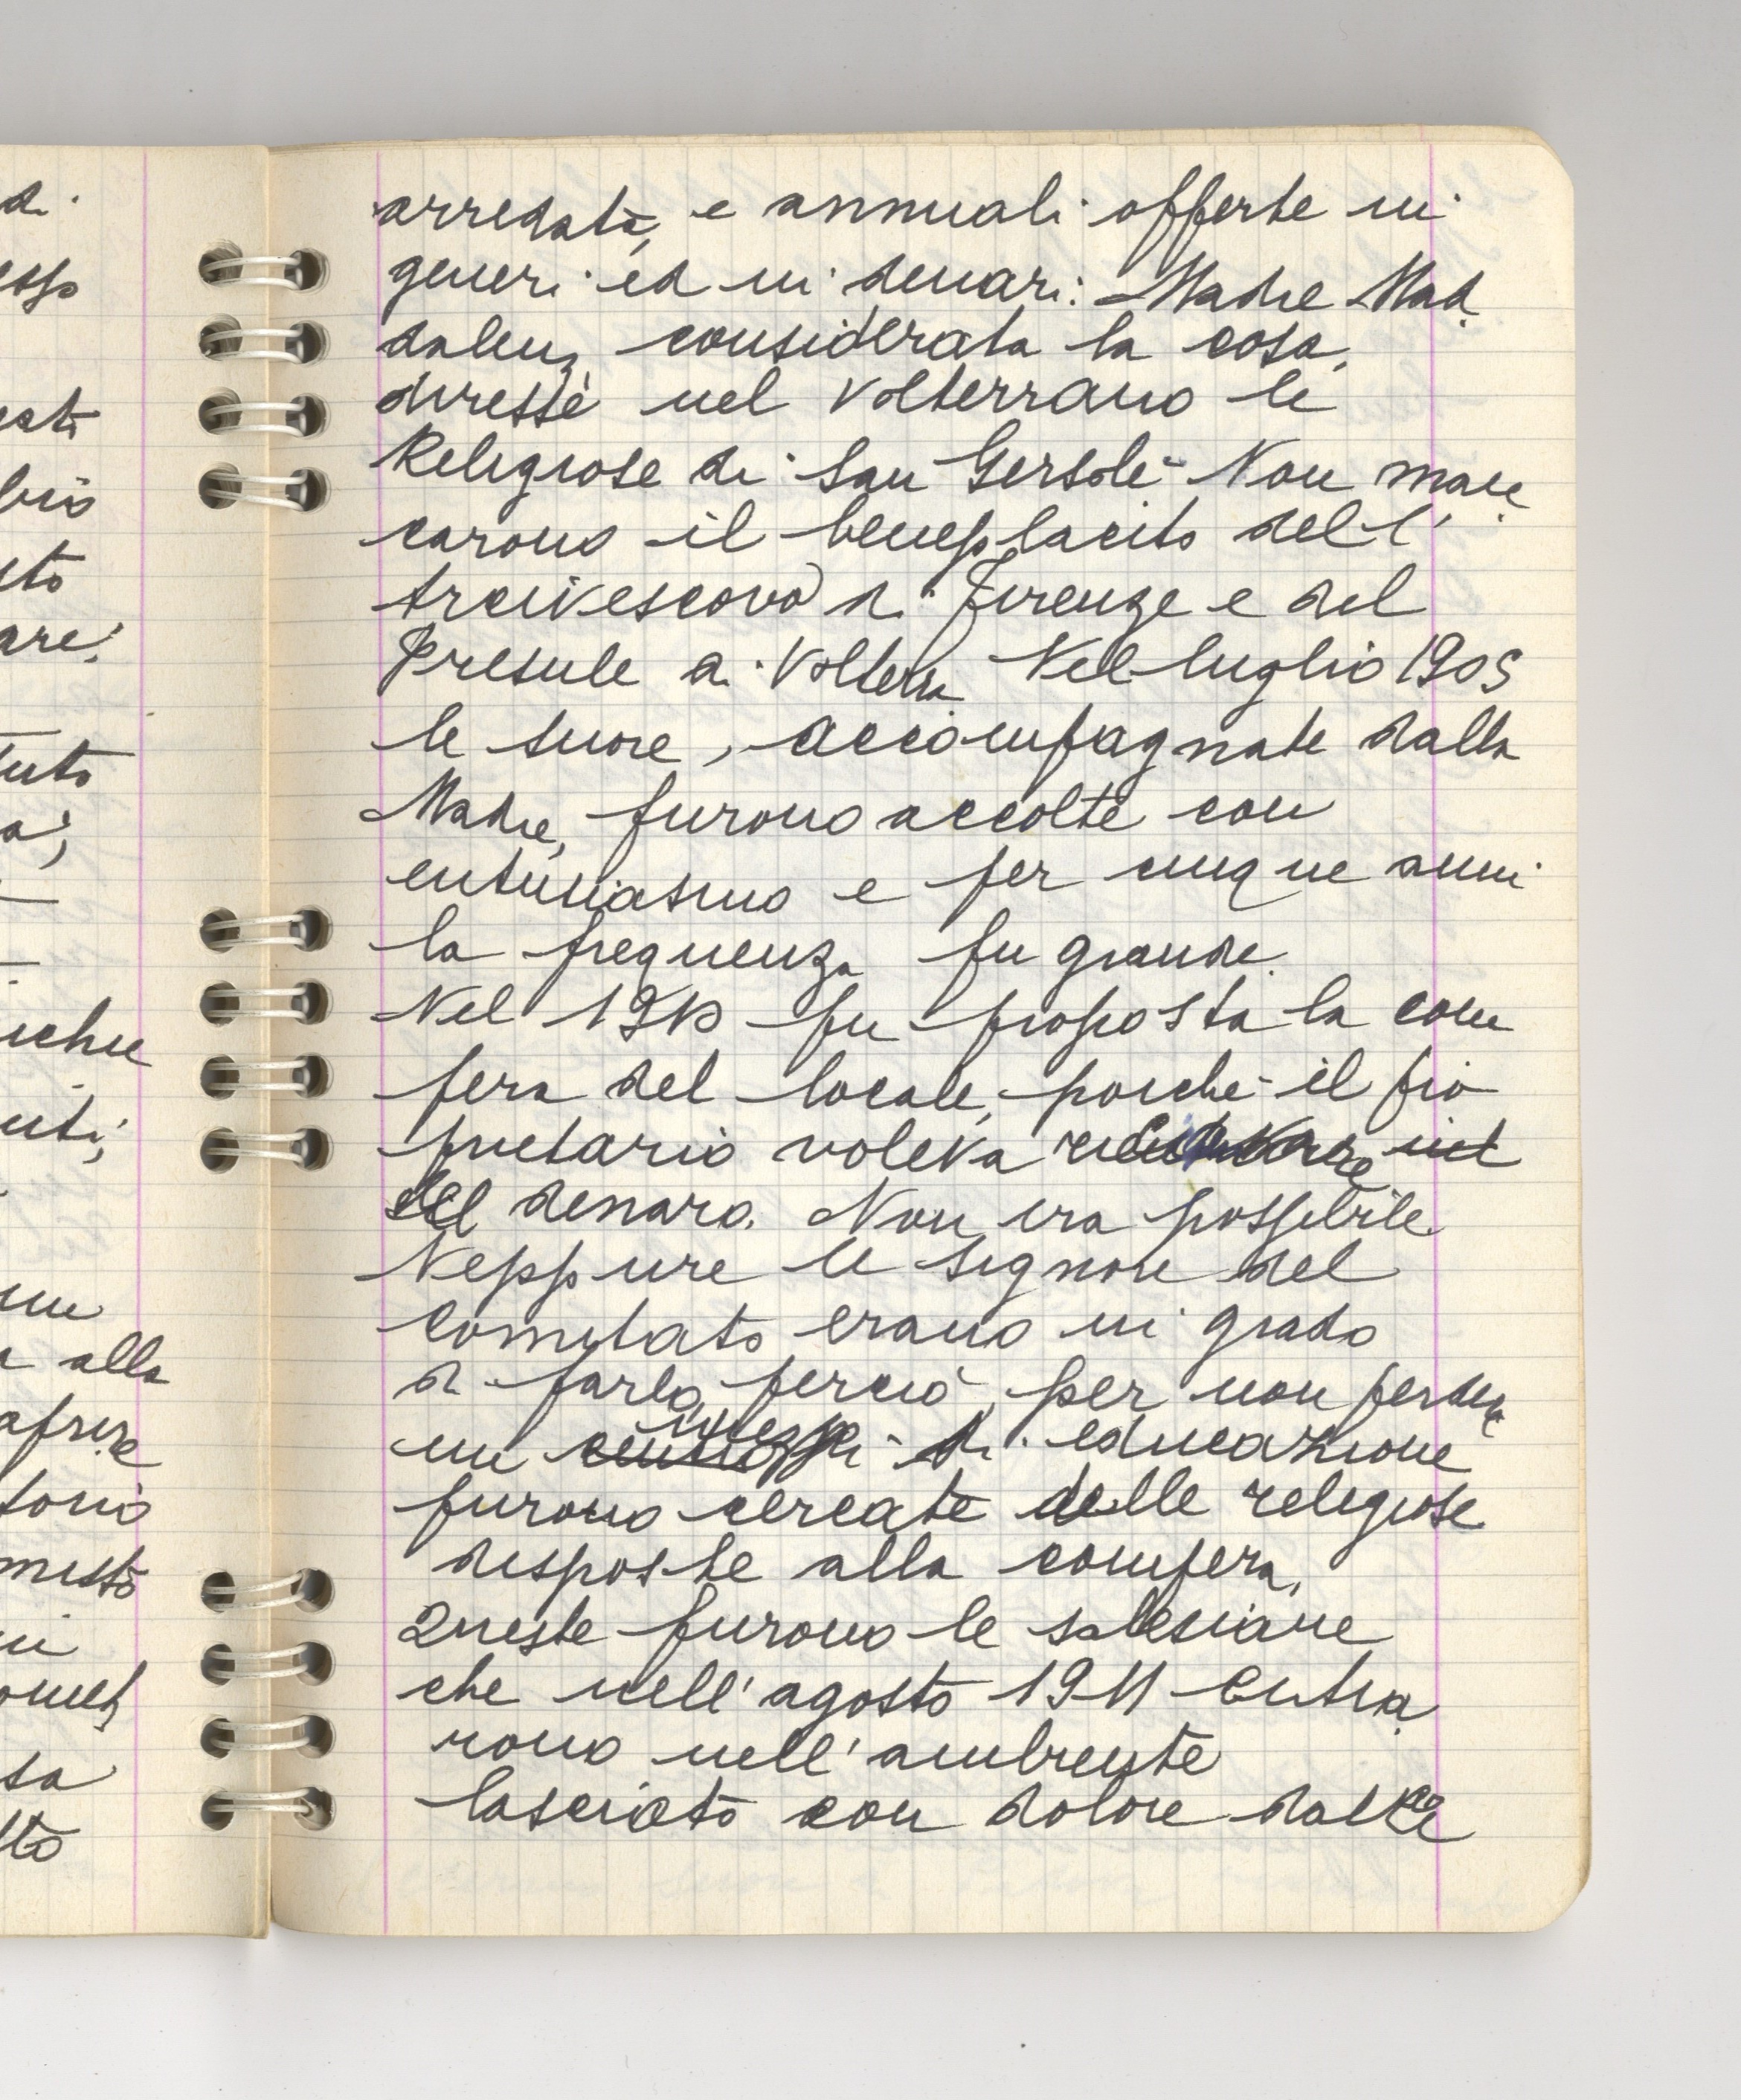 arredata, e annuali offerte in
generi ed in denari. Madre Mad
dalena, considerata la cosa,
diresse nel Volterrano le
Religiose di San Gersolè. Non man
carono il beneplacito dell'
Arcivescovo di Firenze e del
Presule di Volterra. Nel luglio 1905
le suore, accompagnate dalla
Madre, furono accolte con
entusiasmo e per cinque anni
la frequenza fu grande.
Nel 1910 fu proposta la com
pera del locale, poiché il pro
prietario voleva
del denaro. Non era possibile.
Neppure le signore del
comitato erano in grado
di farlo, perciò, per non perdere
un di educazione
furono cercate delle religiose
disposte alla compera.
Queste furono le salesiane
che nell'agosto 1911 entra
rono nell'ambiente
lasciato con dolore dalle